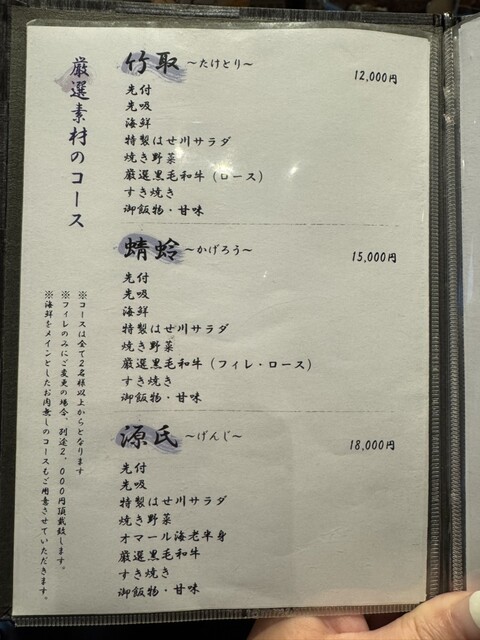 厳選素材のコース
竹取 ~たけとり~ 12,000円
先付
先吸
海鮮
特製はせ川サラダ
焼き野菜
厳選黒毛和牛(ロース)
すき焼き
御飯物・甘味
蜻蛉 ~かげろう~ 15,000円
先付
先吸
海鮮
特製はせ川サラダ
焼き野菜
厳選黒毛和牛(フィレ・ロース)
すき焼き
御飯物・甘味
源氏 ~げんじ~ 18,000円
先付
先吸
特製はせ川サラダ
焼き野菜
オマール海老半身
厳選黒毛和牛
すき焼き
御飯物・甘味
※コースは全て2名様以上からとなります
※フィレのみにご変更の場合、別途2,000円頂戴致します。
※海鮮をメインとしたお肉無しのコースもご用意させていただきます。